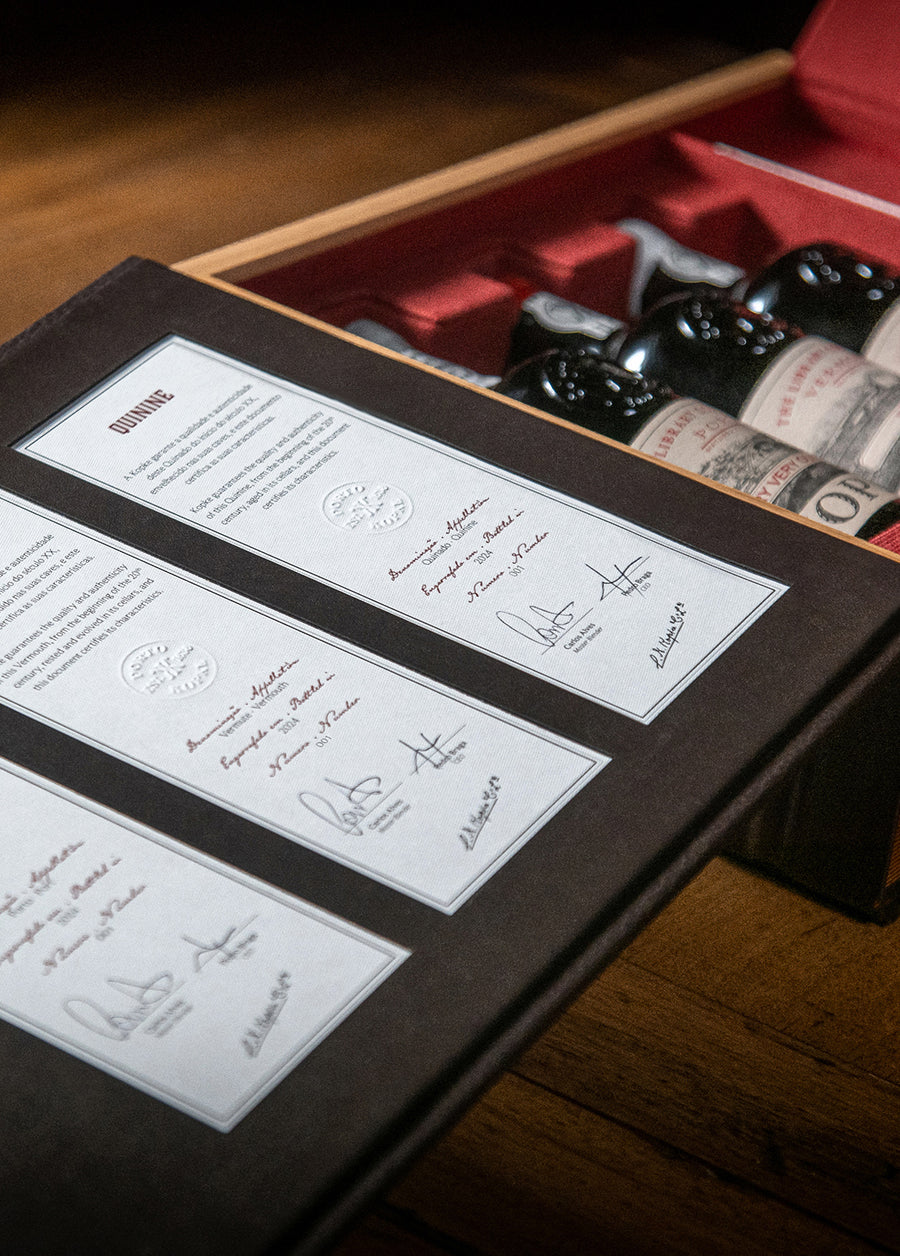 QUININE
A Kopke garante a qualidade e autenticidade
deste Quinado do início do século XX,
envelhecido nas suas caves, e este documento
certifica as suas características.
Kopke guarantees the quality and authenticity
of this Quinine, from the beginning of the 20th
century, aged in its cellars, and this document
certifies its characteristics.
PORTO
EST 1638
KOPKE
Denominação . Appellation
Quinado Quinine
Engarrafado em . Bottled in
2024
Número . Number
001
Carlos Alves
Master Blender
CEO
e autenticidade
início do século XX,
e este
certifica as suas características.
guarantees the quality and authenticity
this Vermouth, from the beginning of the 20th
century, tested and evolved in its cellars, and
this document certifies its characteristics.
PORTO
EST 1638
KOPKE
Denominação . Appellation
Vermute Vermouth
Engarrafado em . Bottled in
2024
Número . Number
001
Carlos Alves
Master Blender
CEO
Appellation
Bottled in
2024
Número . Number
001
THE LIBRARY
LIBRARY
VERY
OP